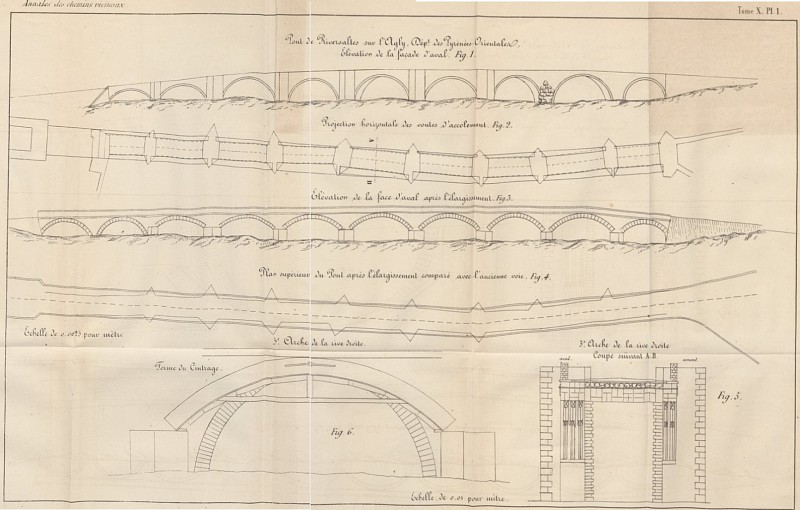 Annales des chemins vicinaux
Tome X. Pl. 1.
Pont de Rivesaltes sur l'Agly, Dépt. des Pyrénées Orientales.
Elévation de la façade d'aval. Fig. 1.
Projection horizontale des voutes d'accolement. Fig. 2.
Elévation de la face d'aval après l'élargissement. Fig. 3.
Plan supérieur du Pont après l'élargissement comparé avec l'ancienne voie. Fig. 4.
Echelle de 0.0025 pour mètre
3e. Arche de la rive droite.
Ferme du Cintrage.
Fig. 6.
3e. Arche de la rive droite
Coupe suivant A.B
aval
amont
Fig. 5.
Echelle de 0.01 pour mètre.